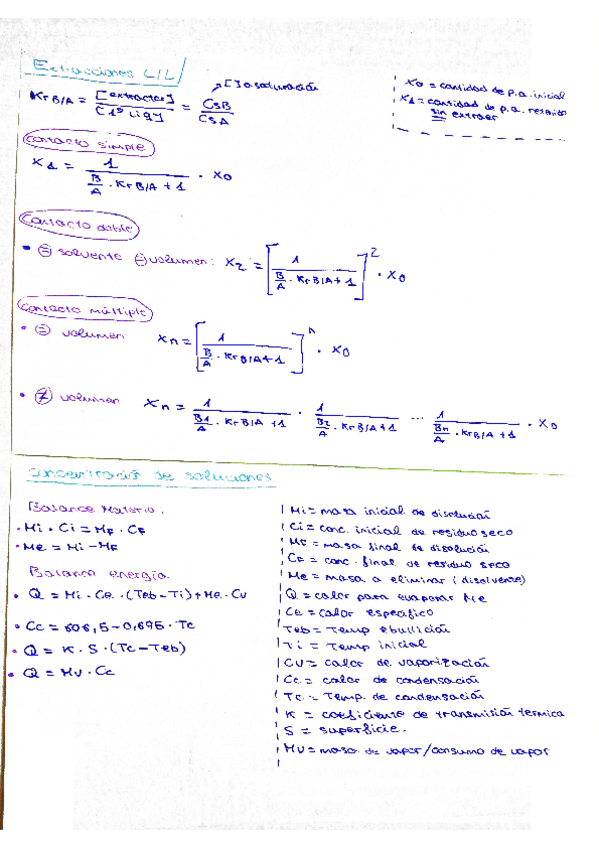 Extracciones L/L
Kr B/A = [extractor] / [1º liq] = CsB / CsA
→ [ ] o saturación
X0 = cantidad de p.a. inicial
X1 = cantidad de p.a. retenido
sin extraer
Contacto simple
X1 = 1 / (B/A · Kr B/A + 1) · X0
Contacto doble
• = solvente = volumen: X2 = [1 / (B/A · Kr B/A + 1)]^2 · X0
Contacto múltiple
• = volumen Xn = [1 / (B/A · Kr B/A + 1)]^n · X0
• ≠ volumen Xn = 1 / (B1/A · Kr B/A + 1) · 1 / (B2/A · Kr B/A + 1) ... 1 / (Bn/A · Kr B/A + 1) · X0
Concentración de soluciones
Balance Materia.
• Mi · Ci = MF · CF
• Me = Mi - MF
Balance energía
• Q = Mi · Ce · (Teb - Ti) + Me · Cv
• Cc = 606,5 - 0,695 · Tc
• Q = K · S · (Tc - Teb)
• Q = Mv · Cc
Mi = masa inicial de disolución
Ci = conc. inicial de residuo seco
MF = masa final de disolución
CF = conc. final de residuo seco
Me = masa a eliminar (disolvente)
Q = calor para evaporar Me
Ce = calor específico
Teb = Temp ebullición
Ti = Temp inicial
CV = calor de vaporización
Cc = calor de condensación
Tc = Temp. de condensación
K = coeficiente de transmisión térmica
S = superficie.
MV = masa de vapor/consumo de vapor